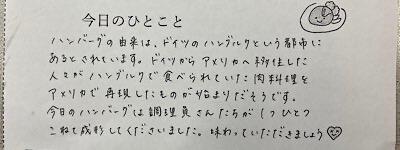 今日のひとこと
ハンバーグの由来は、ドイツのハンブルクという都市に
あるとされています。ドイツからアメリカへ移住した
人々がハンブルクで食べられていた肉料理を
アメリカで再現したものが始まりだそうです。
今日のハンバーグは調理員さんたちが1つひとつ
こねて成形してくださいました。味わっていただきましょう♡